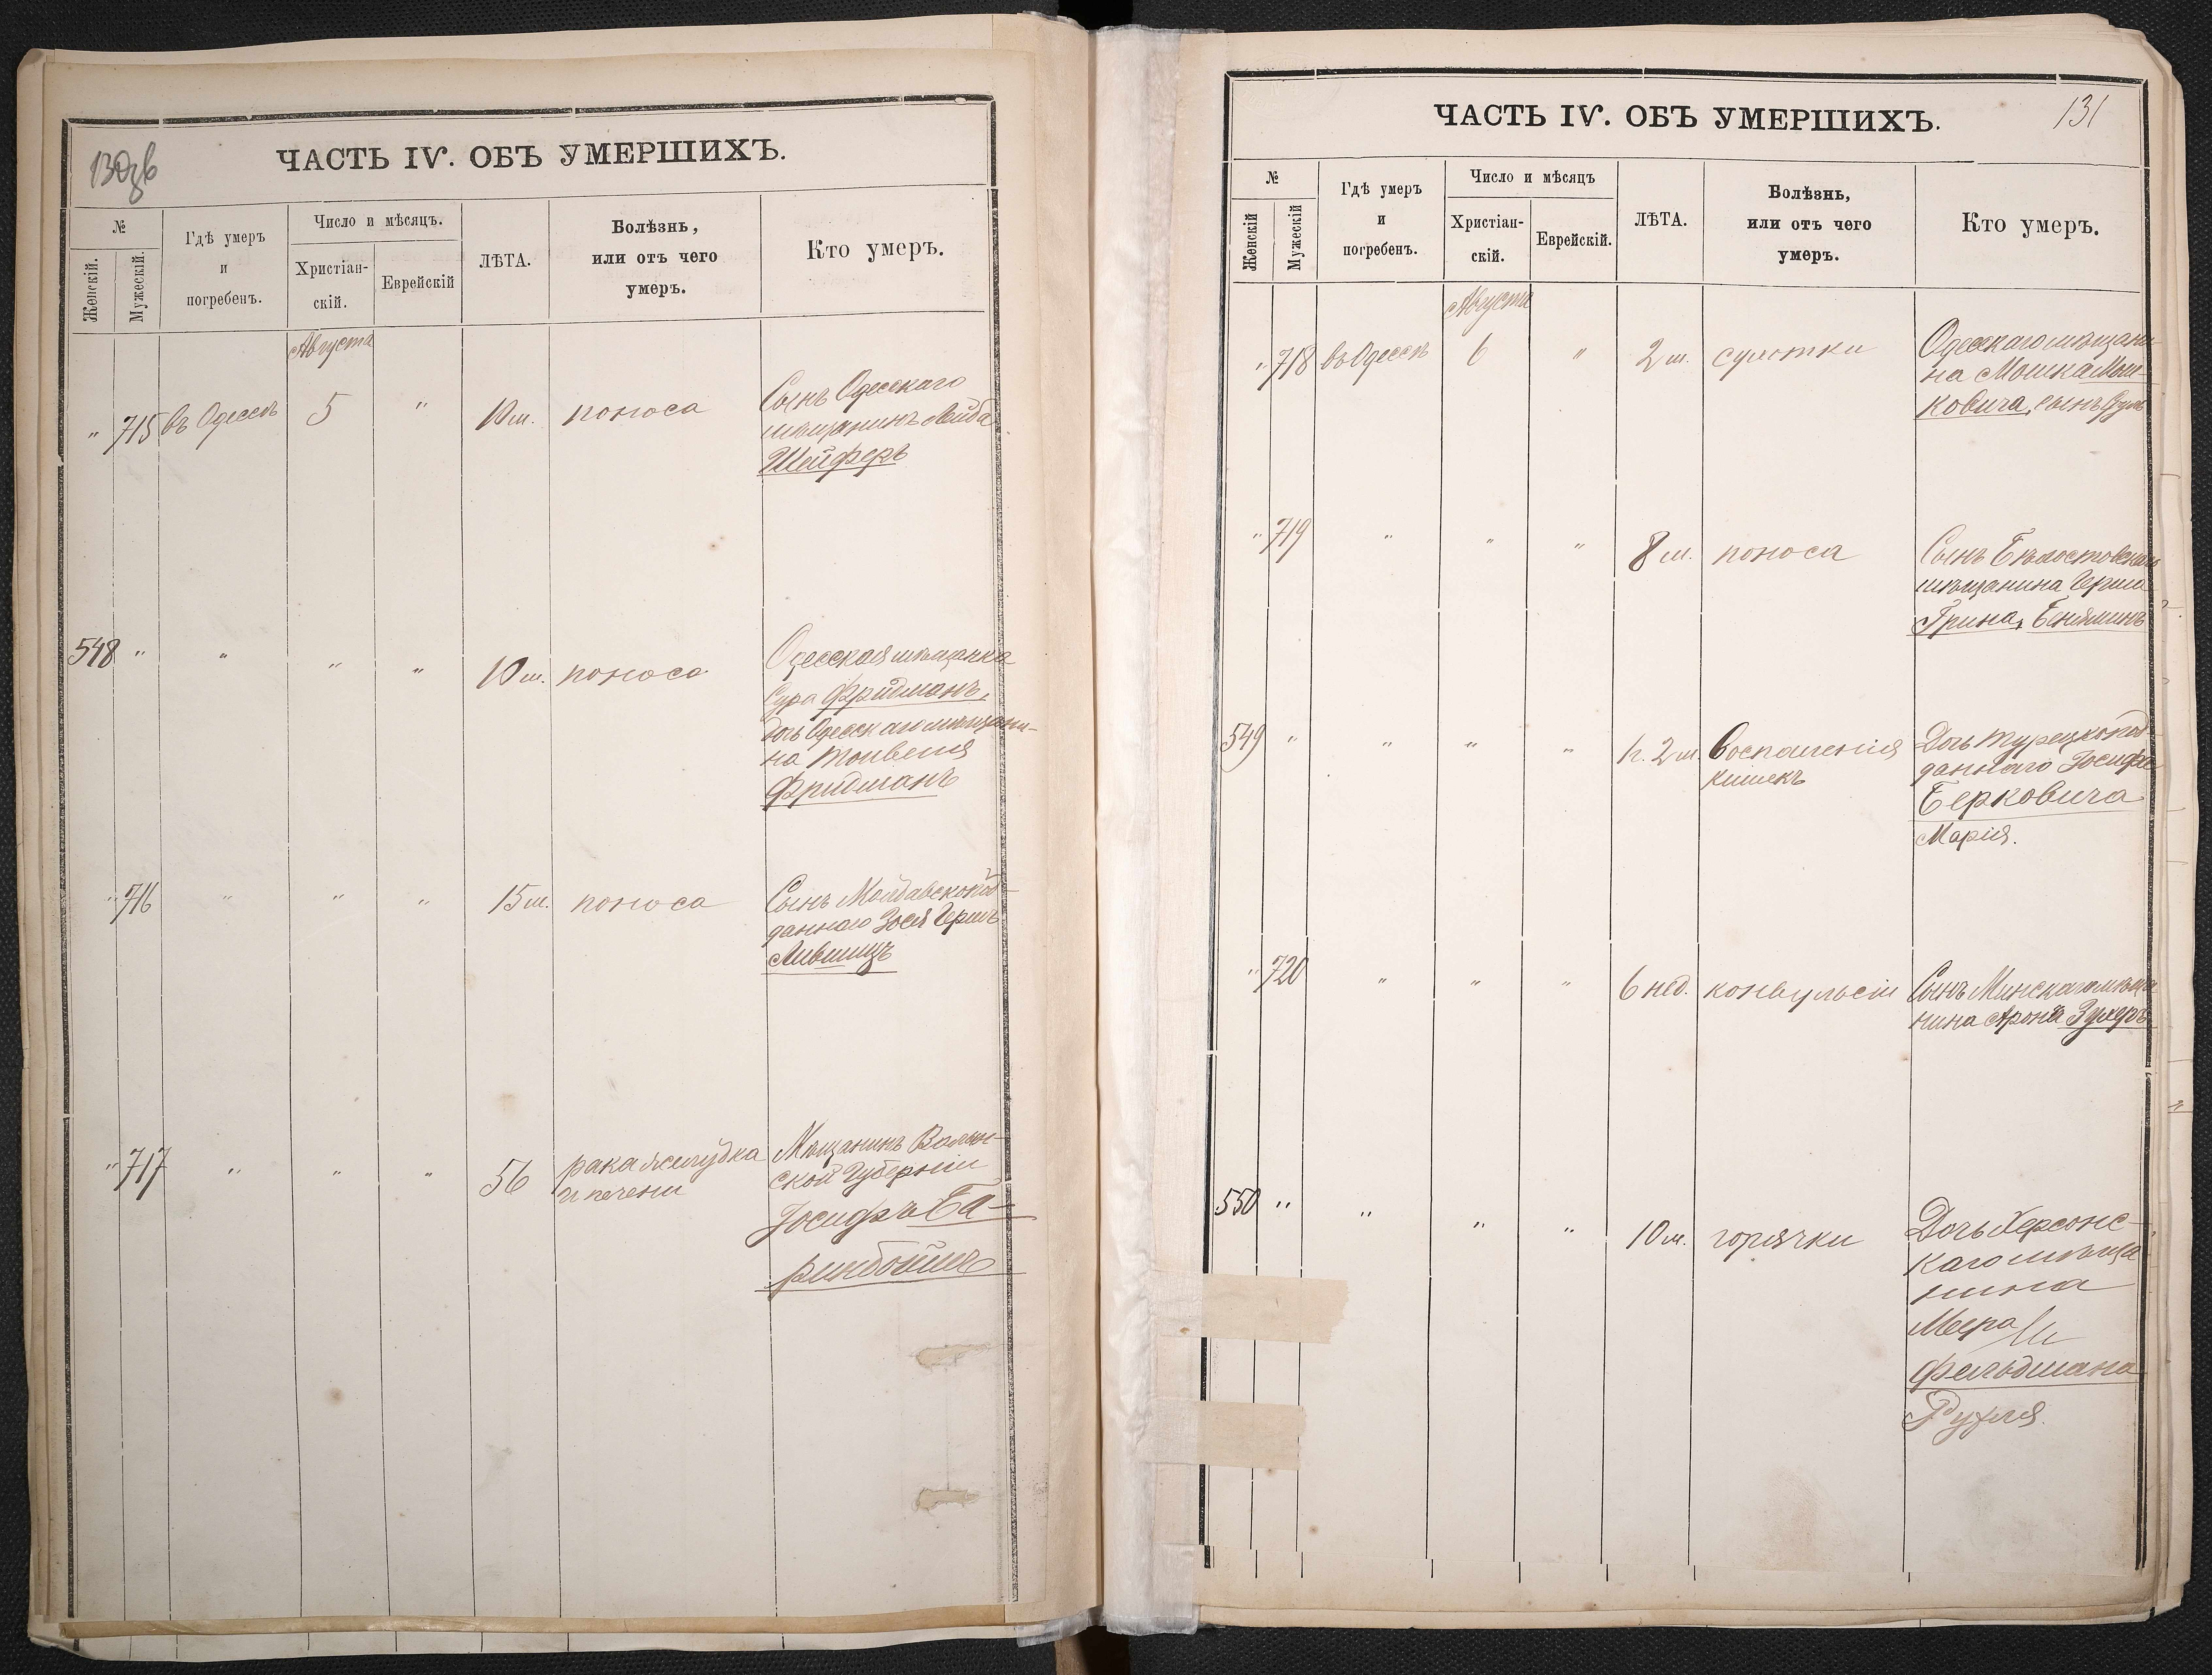 130зв
ЧАСТЬ IV. ОБЪ УМЕРШИХЪ.
№
Женскій.
Мужескій.
Гдѣ умеръ
и
погребенъ.
Число и мѣсяцъ.
Христіан-
скій.
Еврейскій
ЛѢТА.
Болѣзнь,
или отъ чего
умеръ.
Кто умеръ.
Августа
" 715 въ Одессѣ 5 " 10 м. поноса
Сынъ Одесскаго
мѣщанинъ Лейба
Шейферъ
548 " " " " 10 м. поноса
Одесская мѣщанка
Сура Фридманъ,
дочь Одесскаго мѣщани-
на Тойвеля
Фридманъ
" 716 " " " 15 м. поноса
Сынъ Молдавскопод-
даннаго Зося Герш
Лившицъ
" 717 " " " 56 рака желудка
и печени
Мѣщанинъ Волын-
ской Губерніи
Іосифъ Ба-
ринбоймъ
131
ЧАСТЬ IV. ОБЪ УМЕРШИХЪ.
№
Женскій
Мужескій
Гдѣ умеръ
и
погребенъ.
Число и мѣсяцъ
Христіан-
скій.
Еврейскій.
ЛѢТА.
Болѣзнь,
или отъ чего
умеръ.
Кто умеръ.
Августа
" 718 въ Одессѣ 6 " 2 м. сухотки
Одесскаго мѣщани-
на Мошка Мош-
ковича, сынъ
" 719 " " " 8 м. поноса
Сынъ Бѣлостокскаго
мѣщанина Герша
Грина, Беняминъ
549 " " " " 1 г. 2 м. воспаленія
кишекъ
Дочь турецкопод-
даннаго Іосифа
Берковича
Марія.
" 720 " " " 6 нед. конвульсіи
Сынъ Минскаго мѣща
нина Арона Зукеръ
550 " " " " 10 м. горячки
Дочь Херсонс-
каго мѣща
нина
Меера
Фельдмана
Рухля.